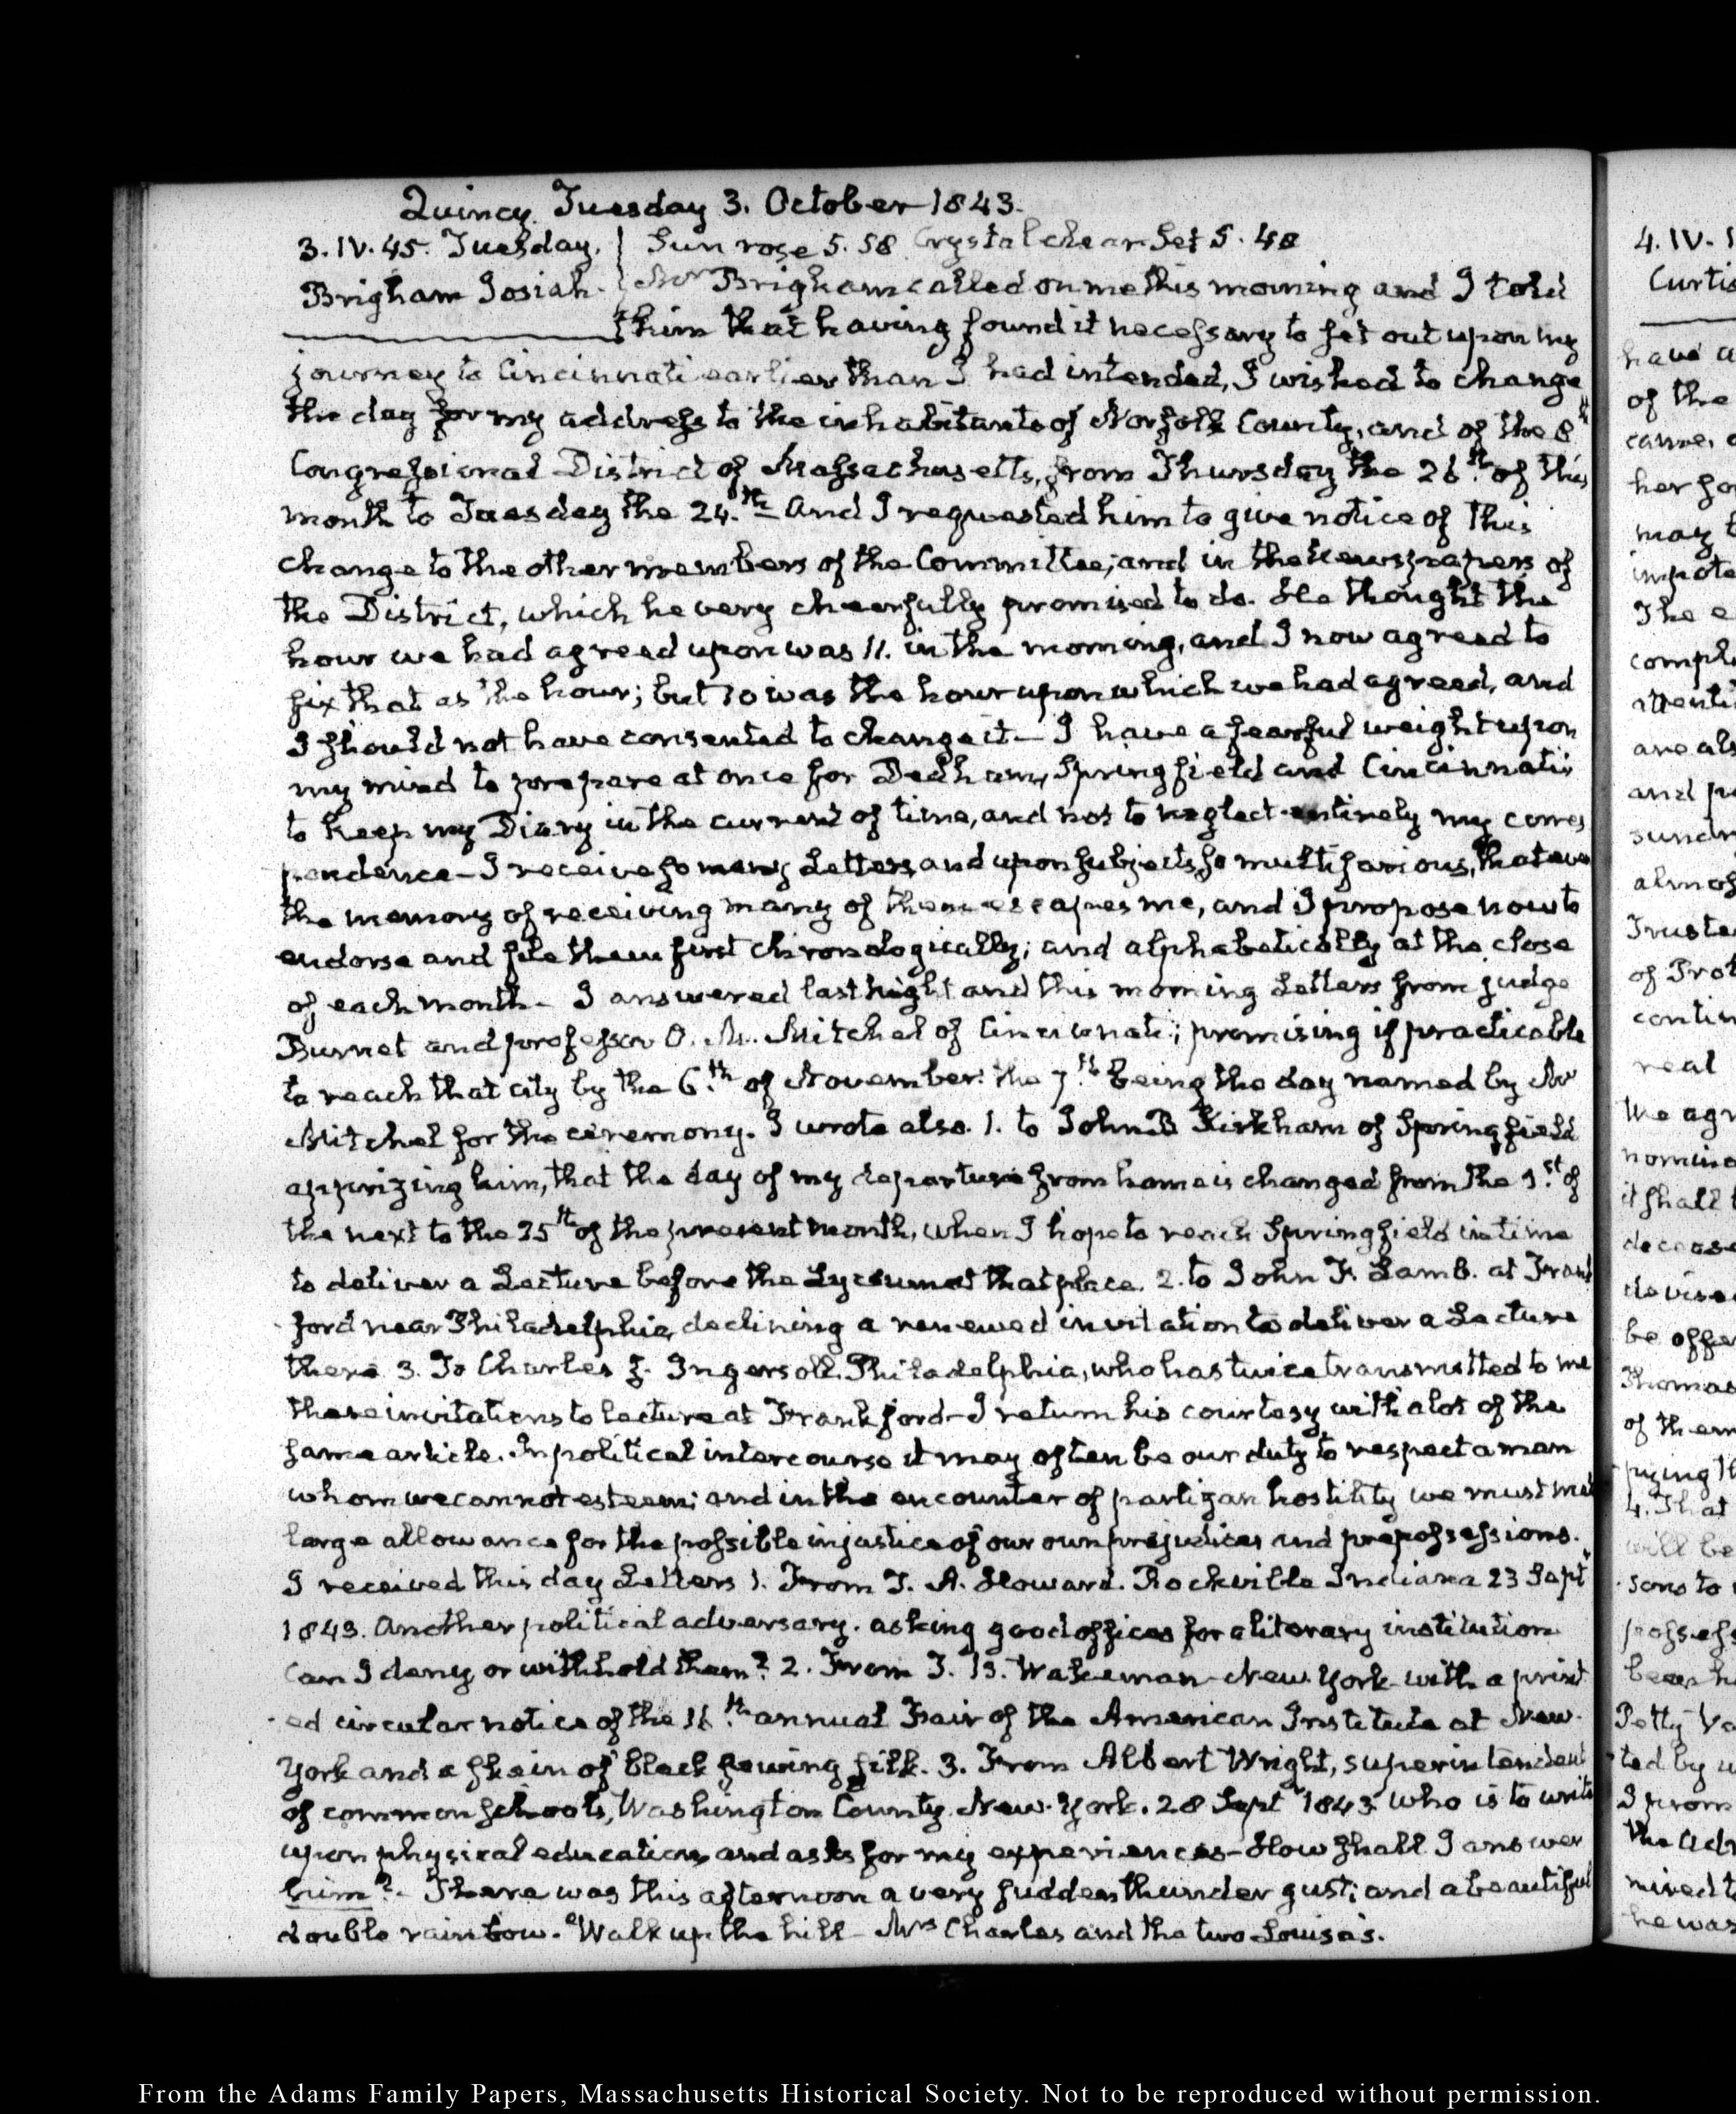 Quincy Tuesday 3. October 1843.
3. IV. 45. Tuesday. Sun rose 5. 58 Crystal clear Set 5. 48
Brigham Josiah. Mr Brigham called on me this morning and I told
him that having found it necessary to set out upon my
journey to Cincinnati earlier than I had intended, I wished to change
the day for my address to the inhabitants of Norfolk County, and of the 8th
Congressional District of Massachusetts, from Thursday the 26th of this
month to Tuesday the 24th and I requested him to give notice of this
change to the other members of the Committee; and in the Newspapers of
the District, which he very cheerfully promised to do. He thought the
hour we had agreed upon was 11. in the morning, and I now agreed to
fix that as the hour; but 10 was the hour upon which we had agreed, and
I should not have consented to change it— I have a fearful weight upon
my mind to prepare at once for Dedham, Springfield and Cincinnati;
to keep my Diary in the current of time, and not to neglect entirely my corres
pondence— I receive so many Letters, and upon subjects so multifarious, that even
the memory of receiving many of them escapes me, and I propose now to
endorse and file them first chronologically; and alphabetically at the close
of each month— I answered last night and this morning Letters from judge
Burnet and professor O. M. Mitchel of Cincinnati; promising if practicable
to reach that city by the 6th of November: the 7th being the day named by Mr
Mitchel for the ceremony. I wrote also. 1. to John B Kirkham of Springfield
apprizing him, that the day of my departure from home is changed from the 1st of
the next to the 25th of the present month, when I hope to reach Springfield in time
to deliver a Lecture before the Lyceum at that place. 2. to John F. Lamb. at Frank
ford near Philadelphia, declining a renewed invitation to deliver a Lecture
there 3. To Charles J. Ingersoll, Philadelphia, who has twice transmitted to me
these invitations to lecture at Frankford— I return his courtesy with a lot of the
same article. In political intercourse it may often be our duty to respect a man
whom we cannot esteem; and in the encounter of partizan hostility we must make
large allowance for the possible injustice of our own prejudices and prepossessions.
I received this day Letters 1. From T. A. Howard. Rockville Indiana 23 Sept
1843. Another political adversary. asking good offices for a literary institution
Can I deny or withhold them? 2. From T. B. Wakeman New York with a print
ed circular notice of the 16th annual Fair of the American Institute at New
York and a skein of black sewing silk. 3. From Albert Wright, superintendent
of common schools, Washington County New-York. 28 Sept 1843 who is to write
upon physical education and asks for my experiences— How shall I answer
him? There was this afternoon a very sudden thunder gust; and a beautiful
double rainbow. Walk up the hill— Mrs Charles and the two Louisa's.
4. IV.
Curtis
have
of the
came.
her
may
The
are also
and
Trustee
of
real
nomina
it shall
decease
devise
be offer
Thomas
of them
4. That
will be
sons to
Petty
ted by
I
the
he was
From the Adams Family Papers, Massachusetts Historical Society. Not to be reproduced without permission.